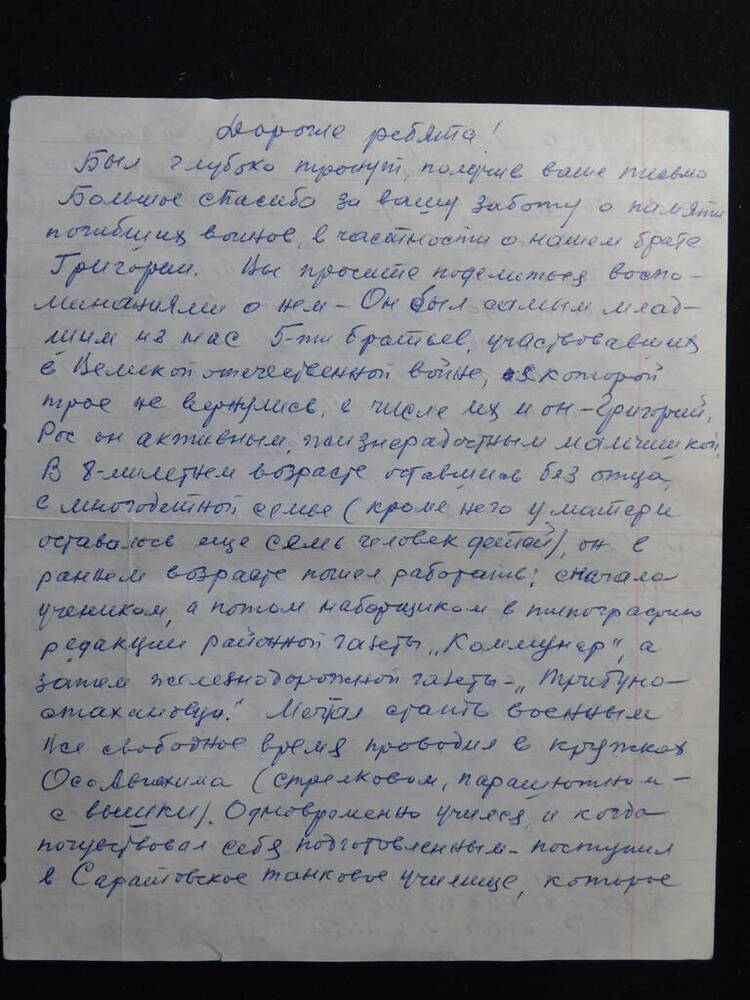 Дорогие ребята!
Был глубоко тронут, получив ваше письмо
Большое спасибо за вашу заботу о памяти
погибших воинов, в частности о нашем брате
Григории. Вы просите поделиться воспо-
минаниями о нем - Он был самым млад-
шим из нас 5-ти братьев, участвовавших
в Великой отечественной войне, с которой
трое не вернулись, в числе их и он - Григорий.
Рос он активным, жизнерадостным мальчишкой.
В 8-милетнем возрасте оставшись без отца,
в многодетной семье (кроме него у матери
оставалось еще семь человек детей), он в
раннем возрасте пошел работать: сначала
учеником, а потом наборщиком в типографию
редакции районной газеты „Коммунар", а
затем железнодорожной газеты - „Трибуна-
стахановца." Мечтал стать военным
Все свободное время проводил в кружках
ОсоАвиахима (стрелковом, парашютном -
с вышки). Одновременно учился, и когда
почувствовал себя подготовленным - поступил
в Саратовское танковое училище, которое